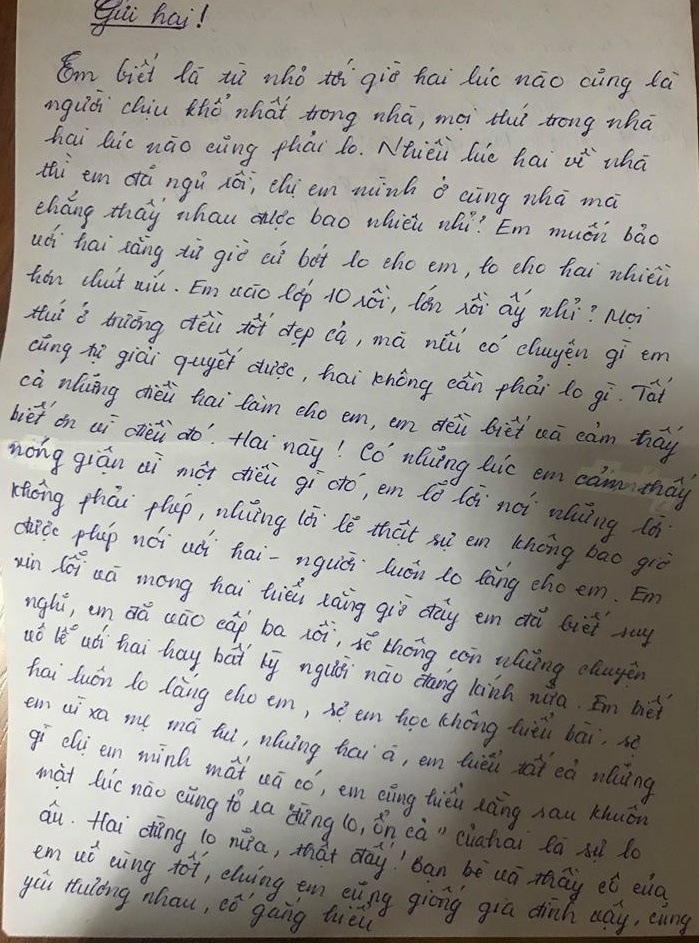 Gửi hai!
Em biết là từ nhỏ tới giờ hai lúc nào cũng là
người chịu khổ nhất trong nhà, mọi thứ trong nhà
hai lúc nào cũng phải lo. Nhiều lúc hai về nhà
thì em đã ngủ rồi, chị em mình ở cùng nhà mà
chẳng thấy nhau được bao nhiêu nhỉ? Em muốn bảo
với hai rằng từ giờ cứ bớt lo cho em, lo cho hai nhiều
hơn chút xíu. Em vào lớp 10 rồi, lớn rồi ấy nhỉ? Mọi
thứ ở trường đều tốt đẹp cả, mà nếu có chuyện gì em
cũng tự giải quyết được, hai không cần phải lo gì. Tất
cả những điều hai làm cho em, em đều biết và cảm thấy
biết ơn vì điều đó. Hai này! Có những lúc em cảm thấy
nóng giận vì một điều gì đó, em lỡ lời nói những lời
không phải phép, những lời lẽ thật sự em không bao giờ
được phép nói với hai - người luôn lo lắng cho em. Em
xin lỗi và mong hai hiểu rằng giờ đây em đã biết suy
nghĩ, em đã vào cấp ba rồi, sẽ không còn những chuyện
vô lễ với hai hay bất kỳ người nào đáng kính nữa. Em biết
hai luôn lo lắng cho em, sợ em học không hiểu bài, sợ
em vì xa mẹ mà hư, nhưng hai à, em hiểu tất cả những
gì chị em mình mất và có, em cũng hiểu rằng sau khuôn
mặt lúc nào cũng tỏ ra "đừng lo, ổn cả" của hai là sự lo
âu. Hai đừng lo nữa, thật đấy! Bạn bè và thầy cô của
em vô cùng tốt, chúng em cũng giống gia đình vậy, cùng
yêu thương nhau, cố gắng hiểu